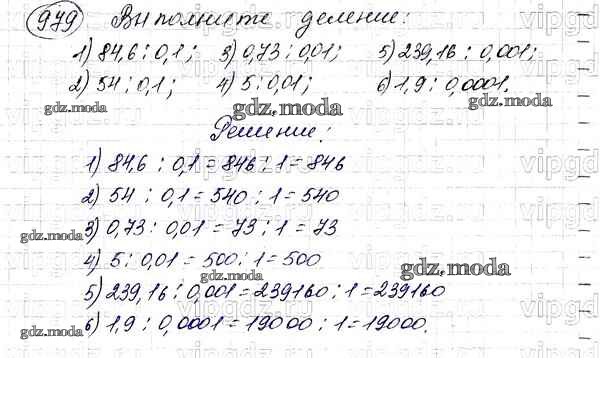 979 Выполните деление:
1) 84,6 : 0,1; 3) 0,73 : 0,01; 5) 239,16 : 0,001;
2) 54 : 0,1; 4) 5 : 0,01; 6) 1,9 : 0,0001.
gdz.moda gdz.moda gdz.moda
Решение:
1) 84,6 : 0,1 = 846 : 1 = 846
2) 54 : 0,1 = 540 : 1 = 540
3) 0,73 : 0,01 = 73 : 1 = 73
gdz.moda
4) 5 : 0,01 = 500 : 1 = 500
gdz.moda gdz.moda
5) 239,16 : 0,001 = 239160 : 1 = 239160
6) 1,9 : 0,0001 = 19000 : 1 = 19000.
gdz.moda